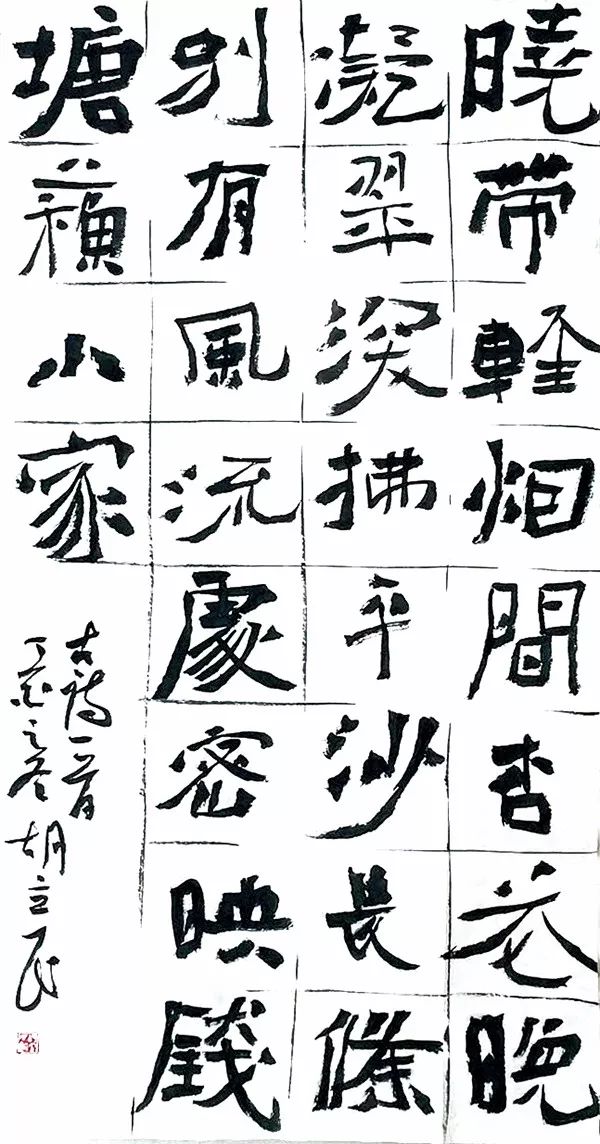 曉帶輕烟間杏花晚
凝翠深拂平沙長條
別有風流處密映錢
塘蘓小家
古詩一首
丁酉之冬胡立民